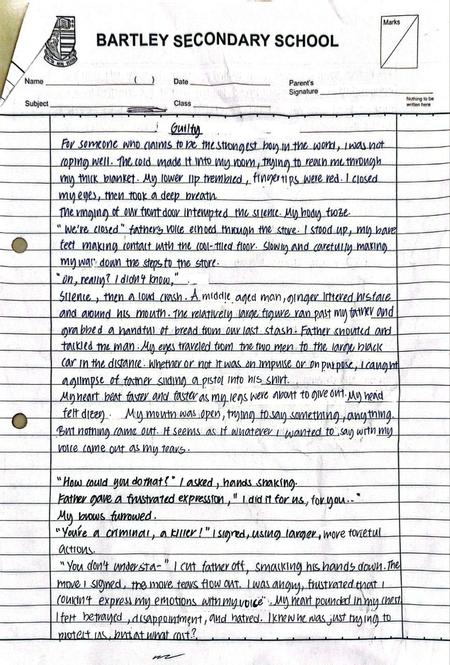 BARTLEY SECONDARY SCHOOL
Marks
Name ( ) Date Parent's
Signature
Subject Class
Nothing to be
written here
Guilty
For someone who claims to be the strongest boy in the world, I was not
coping well. The cold made it into my room, trying to reach me through
my thick blanket. My lower lip trembled, fingertips were red. I closed
my eyes, then took a deep breath
The ringing of our front door interupted the silence. My body froze.
"We're closed" fathers voice echoed through the store. I stood up, my bare
feet making contact with the cool-tiled floor. Slowly and carefully making
my way down the steps to the store.
"Oh, really? I didn't know,"
Silence, then a loud crash. A middle aged man, ginger littered his face
and around his mouth. The relatively large figure ran past my father and
grabbed a handful of bread from our last stash. Father shouted and
tackled the man. My eyes traveled from the two men to the large black
car in the distance. Whether or not it was on impulse or on purpose, I caught
a glimpse of father sliding a pistol into his shirt.
My heart beat faster and faster as my legs were about to give out. My head
felt dizzy. My mouth was open, trying to say something, anything.
But nothing came out. It seems as if whatever I wanted to say with my
voice came out as my tears.
"How could you do that?" I asked, hands shaking.
Father gave a frustrated expression, "I did it for us, for you.."
My brows furrowed.
"You're a criminal, a killer!" I signed, using larger, more forceful
actions.
"You don't understa-" I cut father off, smacking his hands down. The
move I signed, the more tears flow out. I was angry, frustrated that I
couldn't express my emotions with my "voice". My heart pounded in my chest
I felt betrayed, disappointment, and hatred. I knew he was just trying to
protect us, but at what cost?